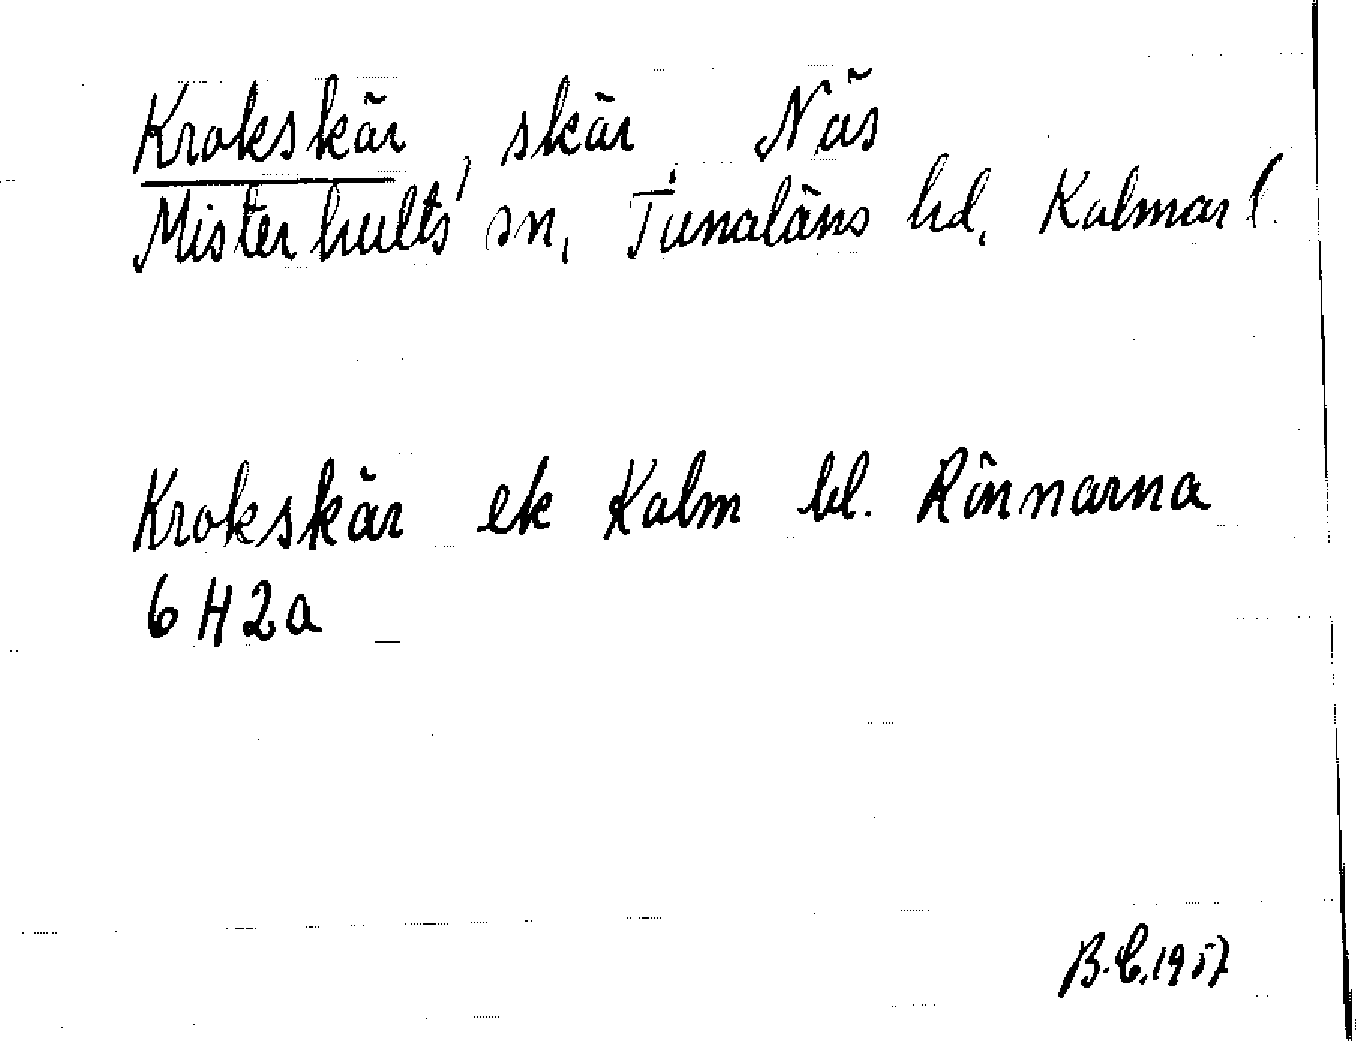 Krokskär, skär Näs
Misterhults sn, Tunaläns hd, Kalmar l.
Krokskär ek Kalm bl. Rönnarna
6H2a
B.C. 1957